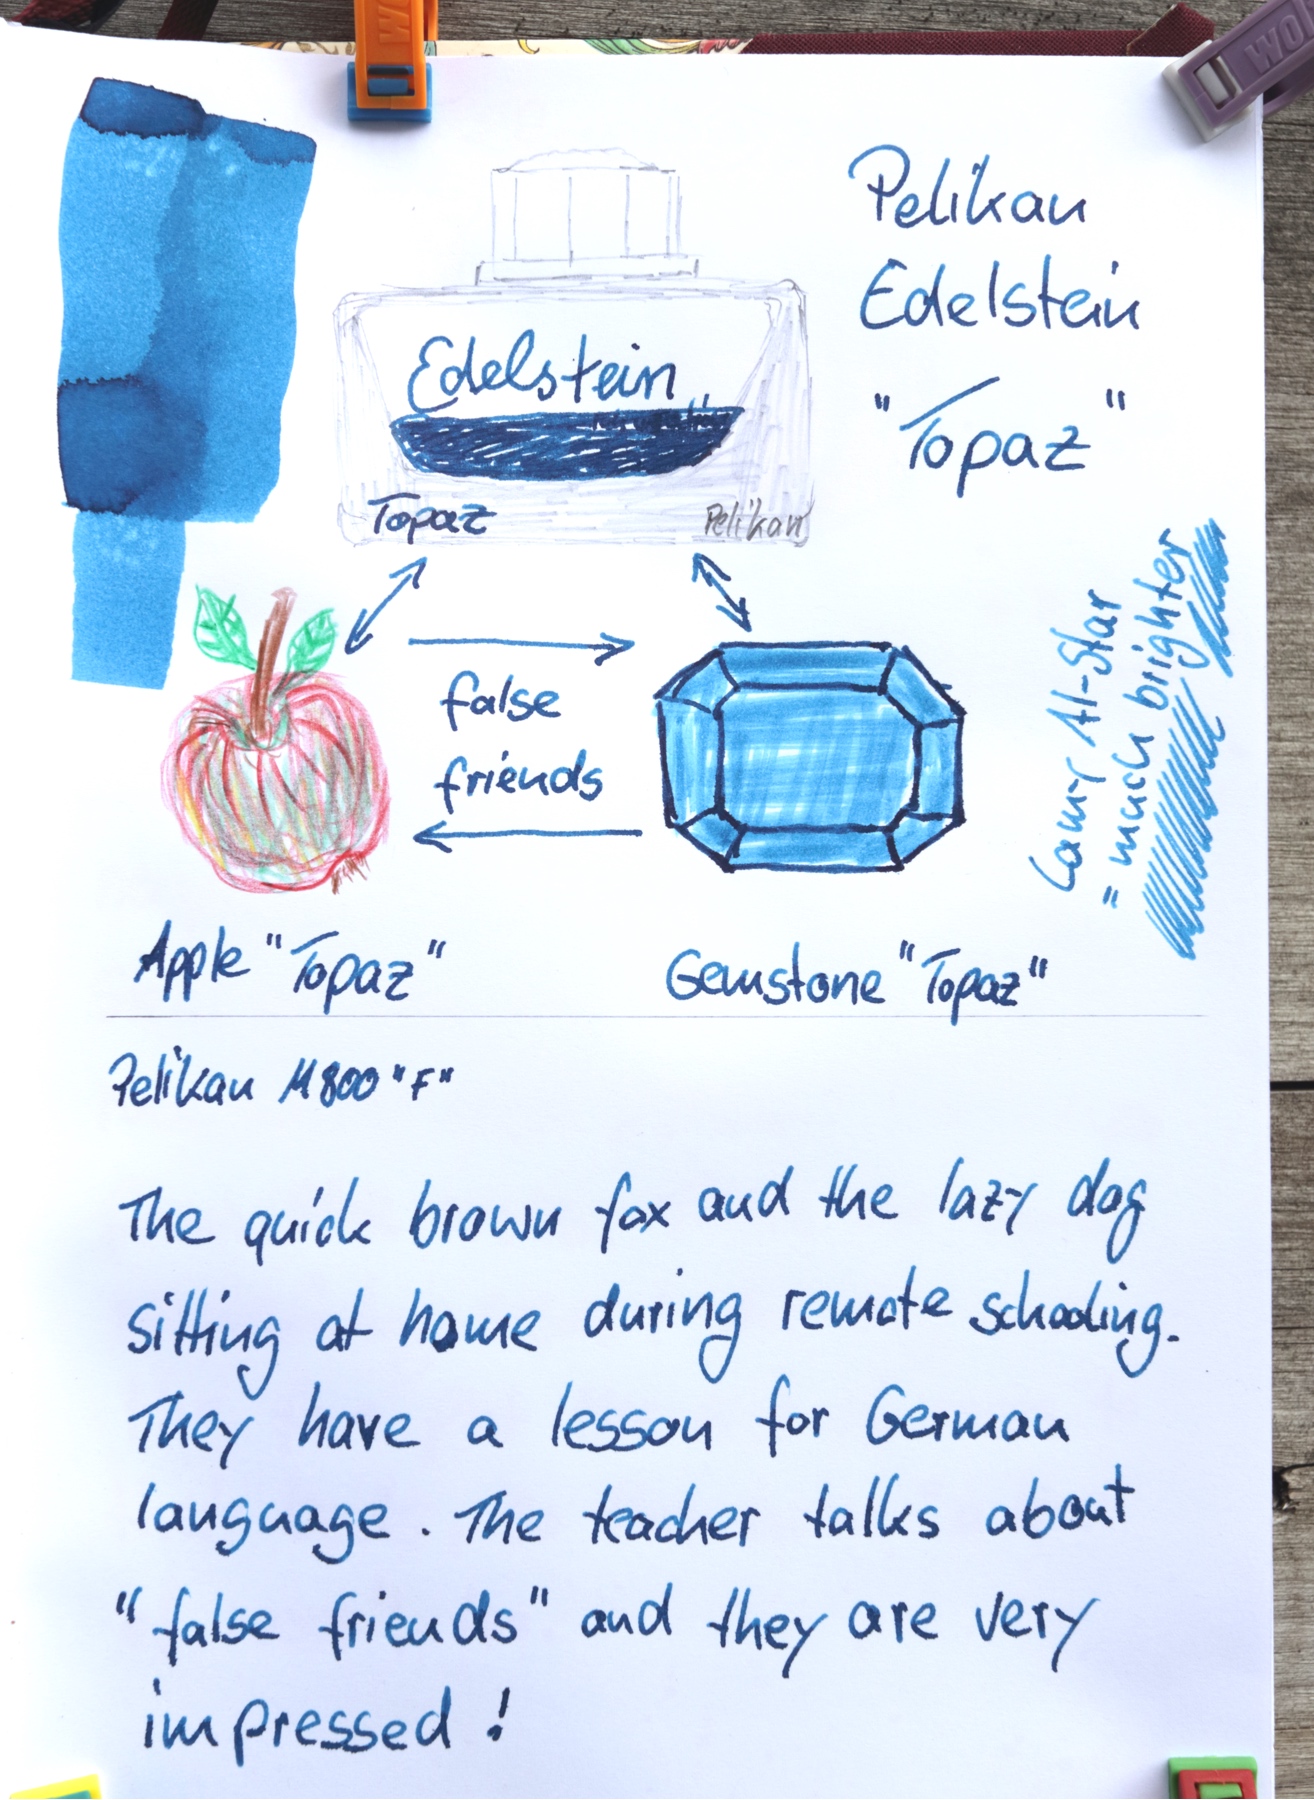 WO
WO
Pelikan
Edelstein
"Topaz"
Edelstein
Topaz
Pelikan
false
friends
Lamy Al-Star
= much brighter
Apple "Topaz"
Gemstone "Topaz"
Pelikan M800 "F"
The quick brown fox and the lazy dog
sitting at home during remote schooling.
They have a lesson for German
language. The teacher talks about
"false friends" and they are very
impressed!